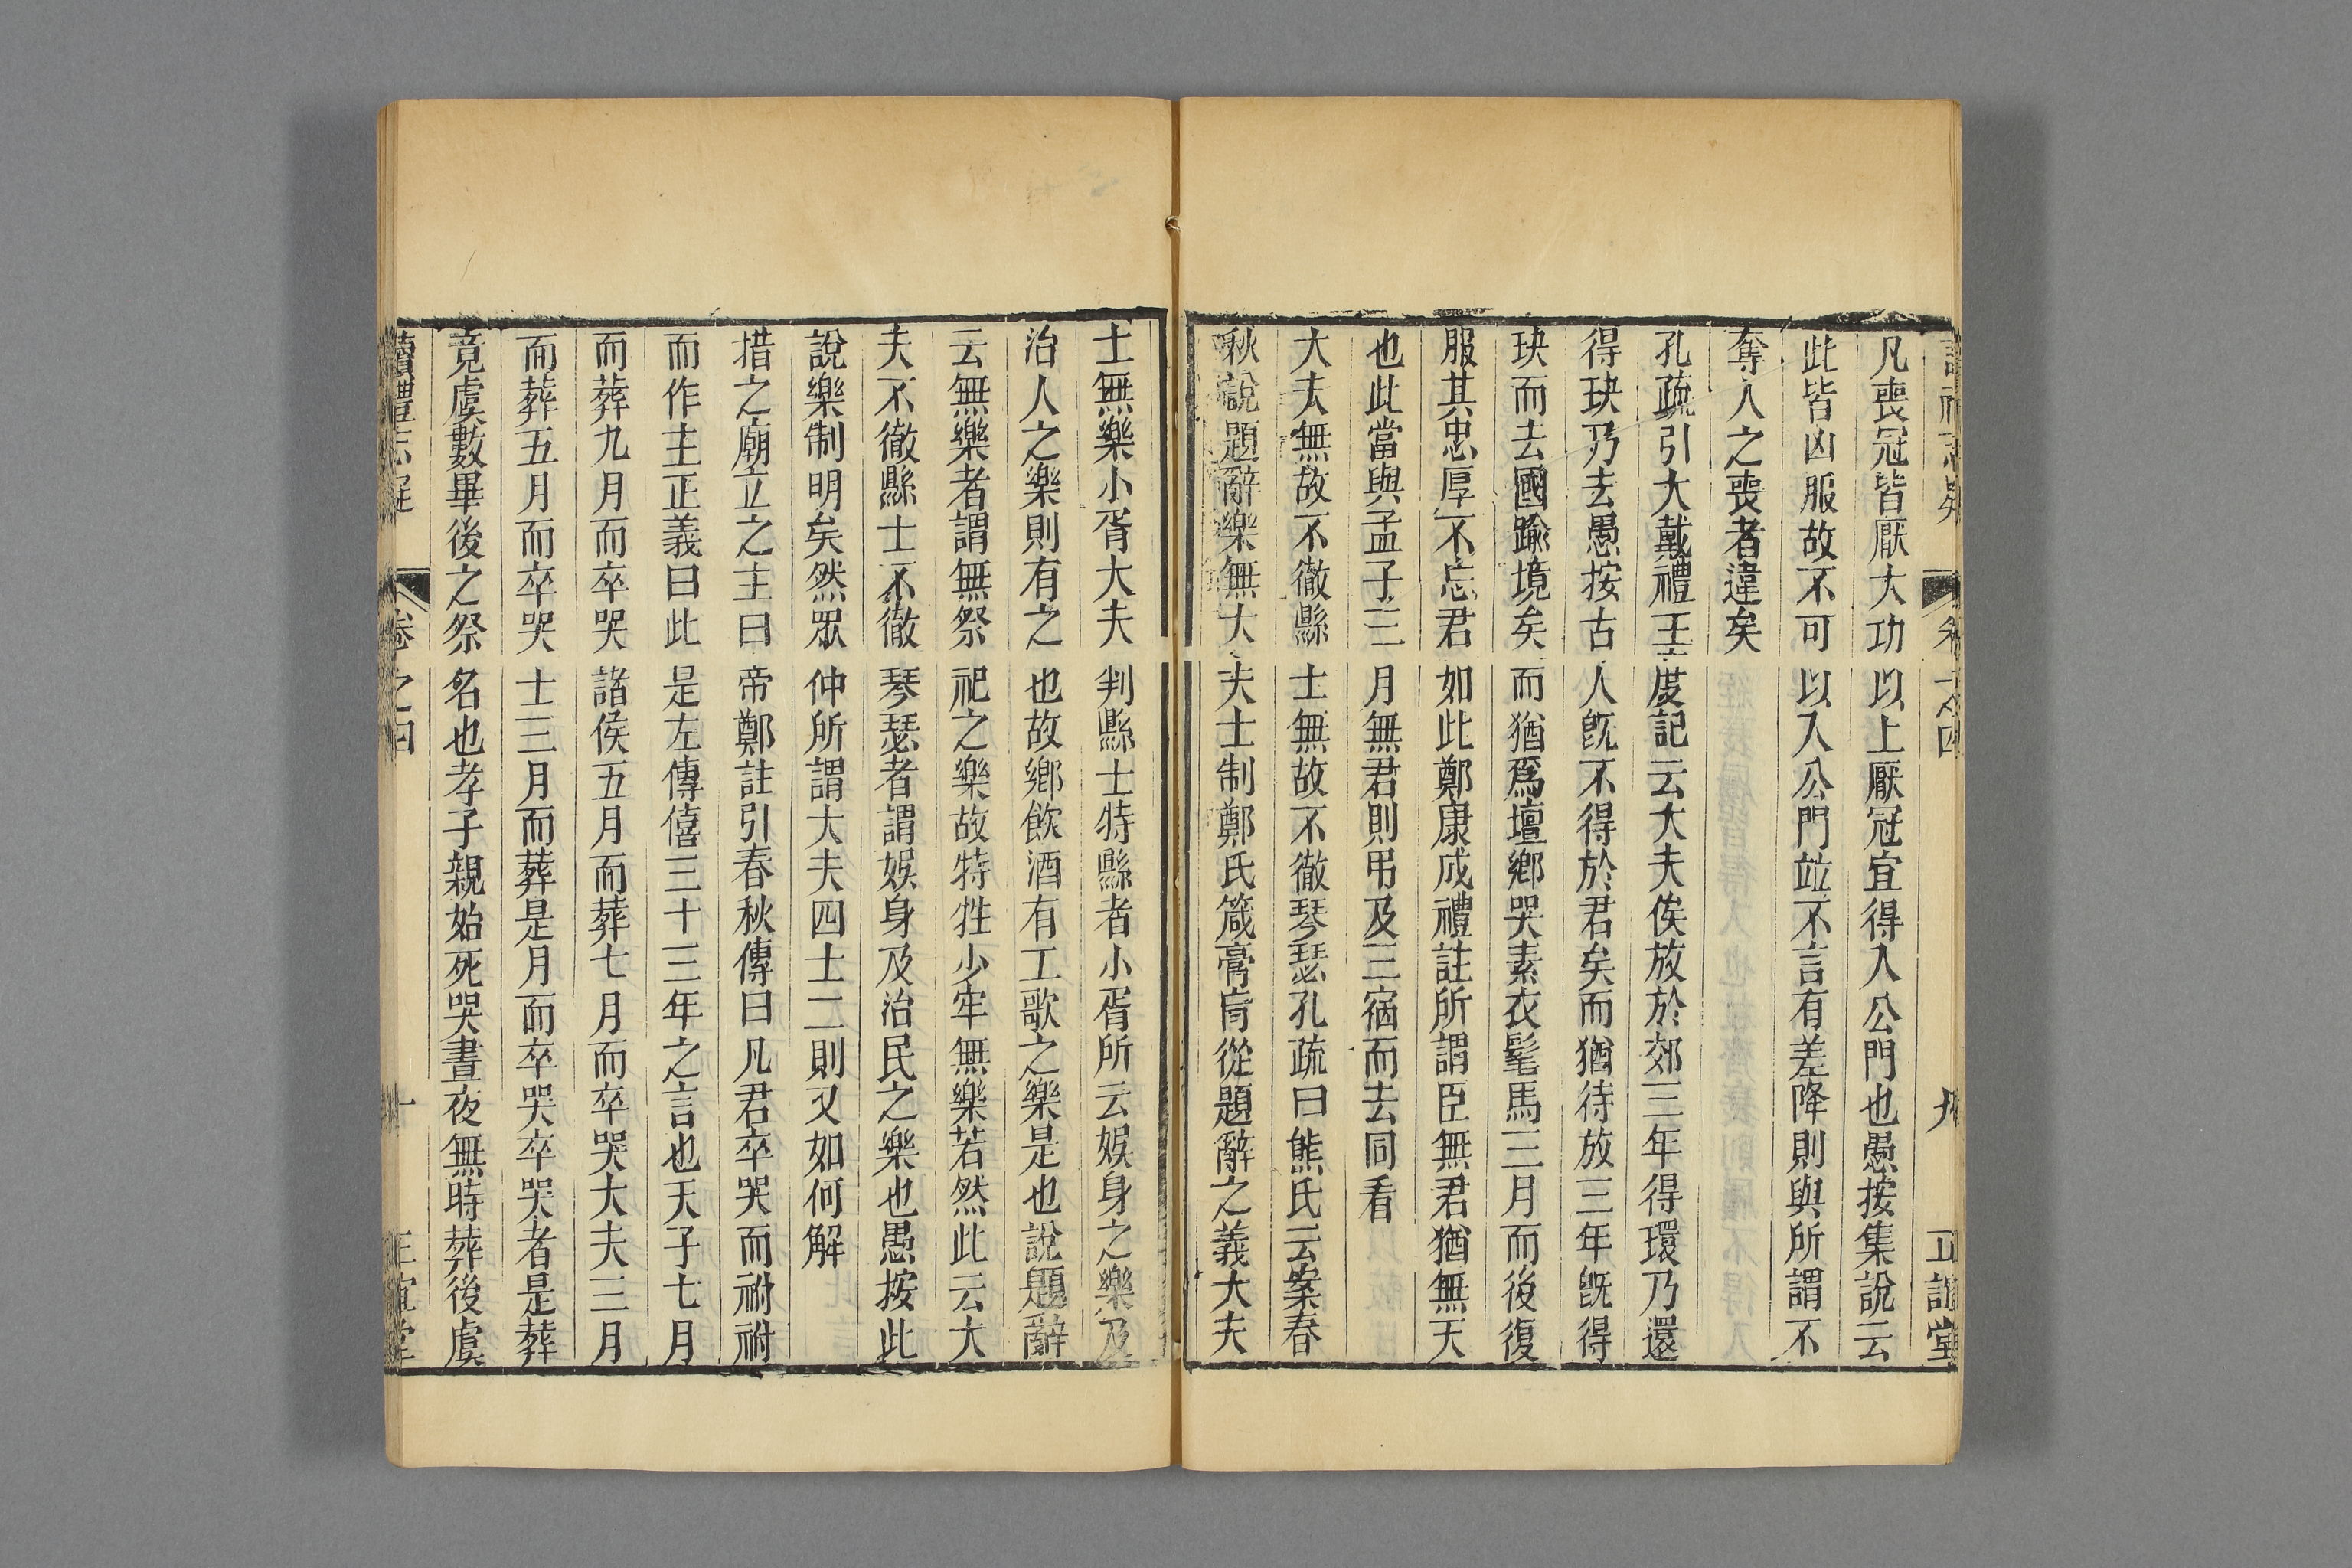 凡喪冠皆厭大功以上厭冠宜得入公門也愚按集說云
此皆凶服故不可以入公門竝不言有差降則與所謂不
奪人之喪者違矣
孔疏引大戴禮王度記云大夫俟放於郊三年得環乃還
得玦乃去愚按古人旣不得於君矣而猶待放三年旣得
玦而去國踰境矣而猶爲壇鄉哭素衣髦馬三月而後復
服其忠厚不忘君如此鄭康成禮註所謂臣無君猶無天
也此當與孟子三月無君則弔及三宿而去同看
大夫無故不徹縣士無故不徹琴瑟孔疏曰熊氏云案春
秋說題辭樂無大夫士制鄭氏箴膏肓從題辭之義大夫
士無樂小胥大夫判縣士特縣者小胥所云娛身之樂及
治人之樂則有之也故鄉飲酒有工歌之樂是也說題辭
云無樂者謂無祭祀之樂故特牲少牢無樂若然此云大
夫不徹縣士不徹琴瑟者謂娛身及治民之樂也愚按此
說樂制明矣然眾仲所謂大夫四士二則又如何解
措之廟立之主曰帝鄭註引春秋傳曰凡君卒哭而祔祔
而作主正義曰此是左傳僖三十三年之言也天子七月
而葬九月而卒哭諸侯五月而葬七月而卒哭大夫三月
而葬五月而卒哭士三月而葬是月而卒哭卒哭者是葬
竟虞數畢後之祭名也孝子親始死哭晝夜無時葬後虞
卷之四